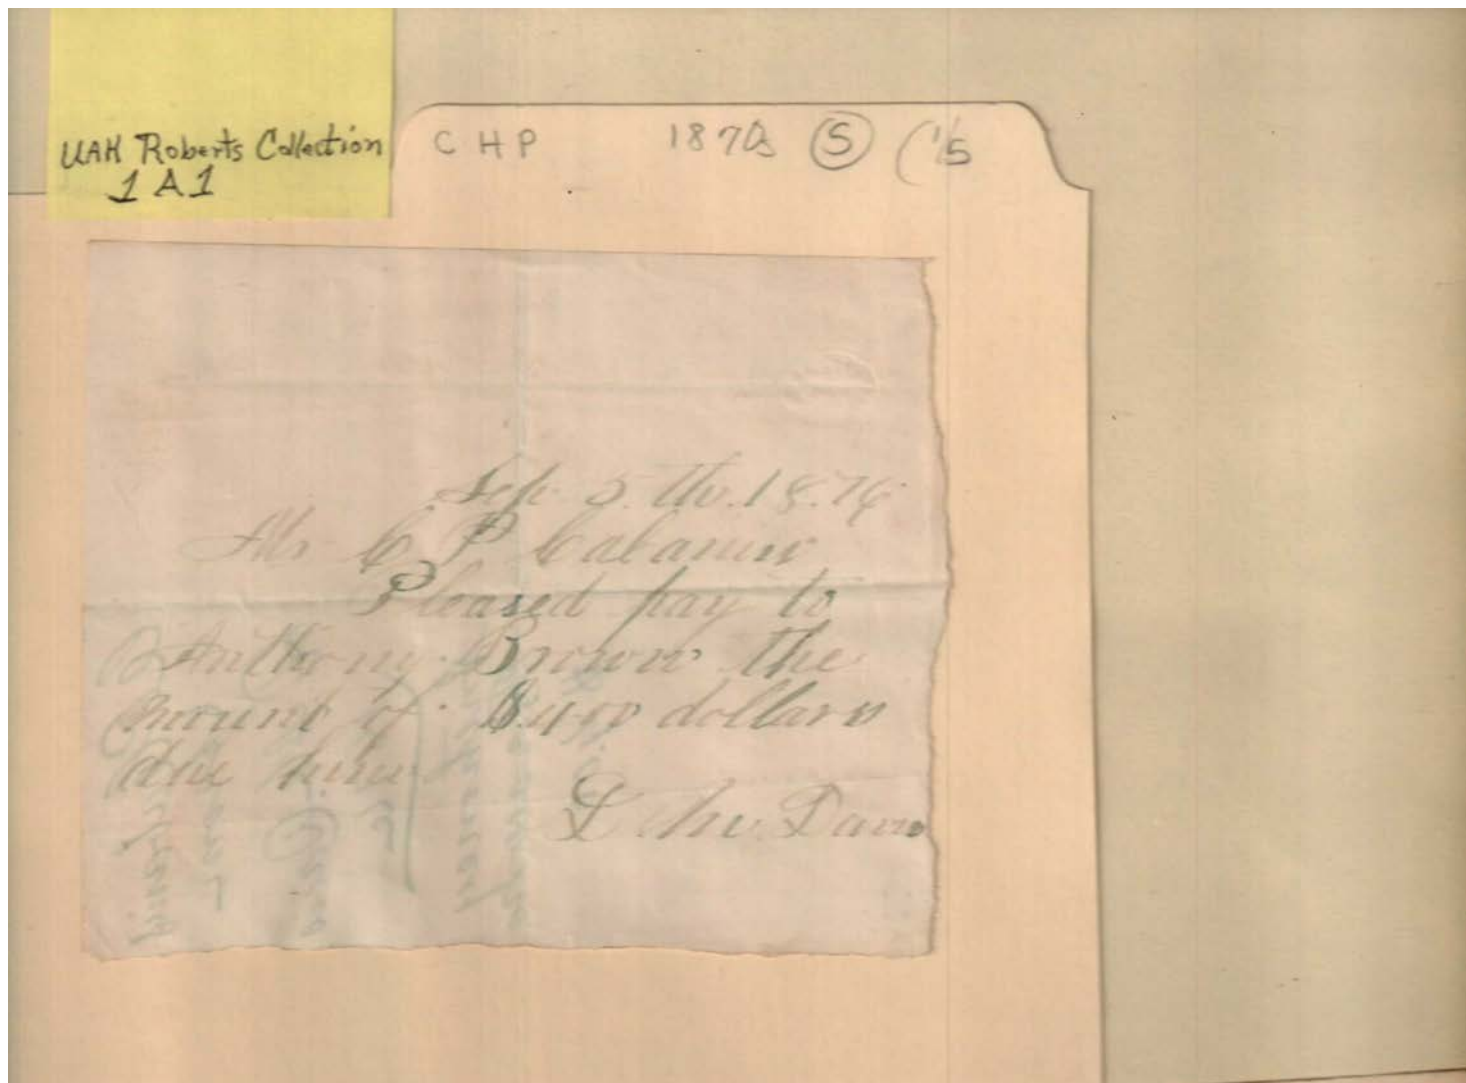 UAH Roberts Collection
1 A 1
CHP 1870s (S) ('15
Sep. 5. th. 18.76
Mr C P Cabaniss
Pleased pay to
Anthony. Brown the
mount of. $.4.00 dollars
due him
John. Davis